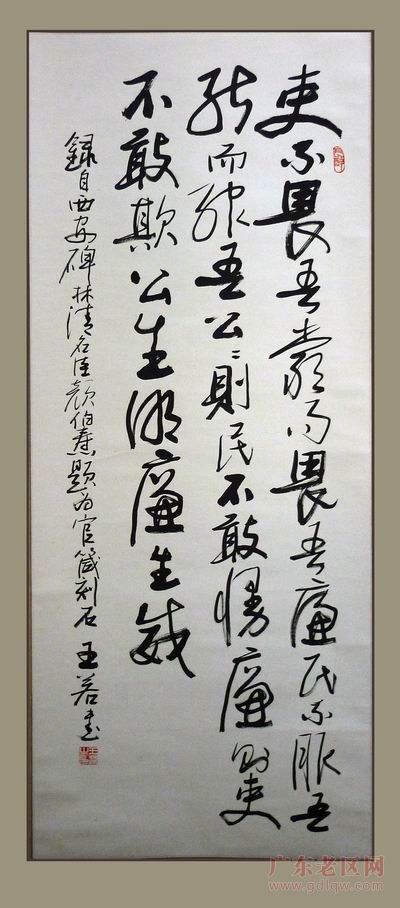 吏不畏吾嚴而畏吾廉民不服吾
能而服吾公〻則民不敢慢廉則吏
不敢欺公生明廉生威
錄自西安碑林清名臣顏伯燾題为官箴刻石 王若書
广东老区网
www.gdlqw.com